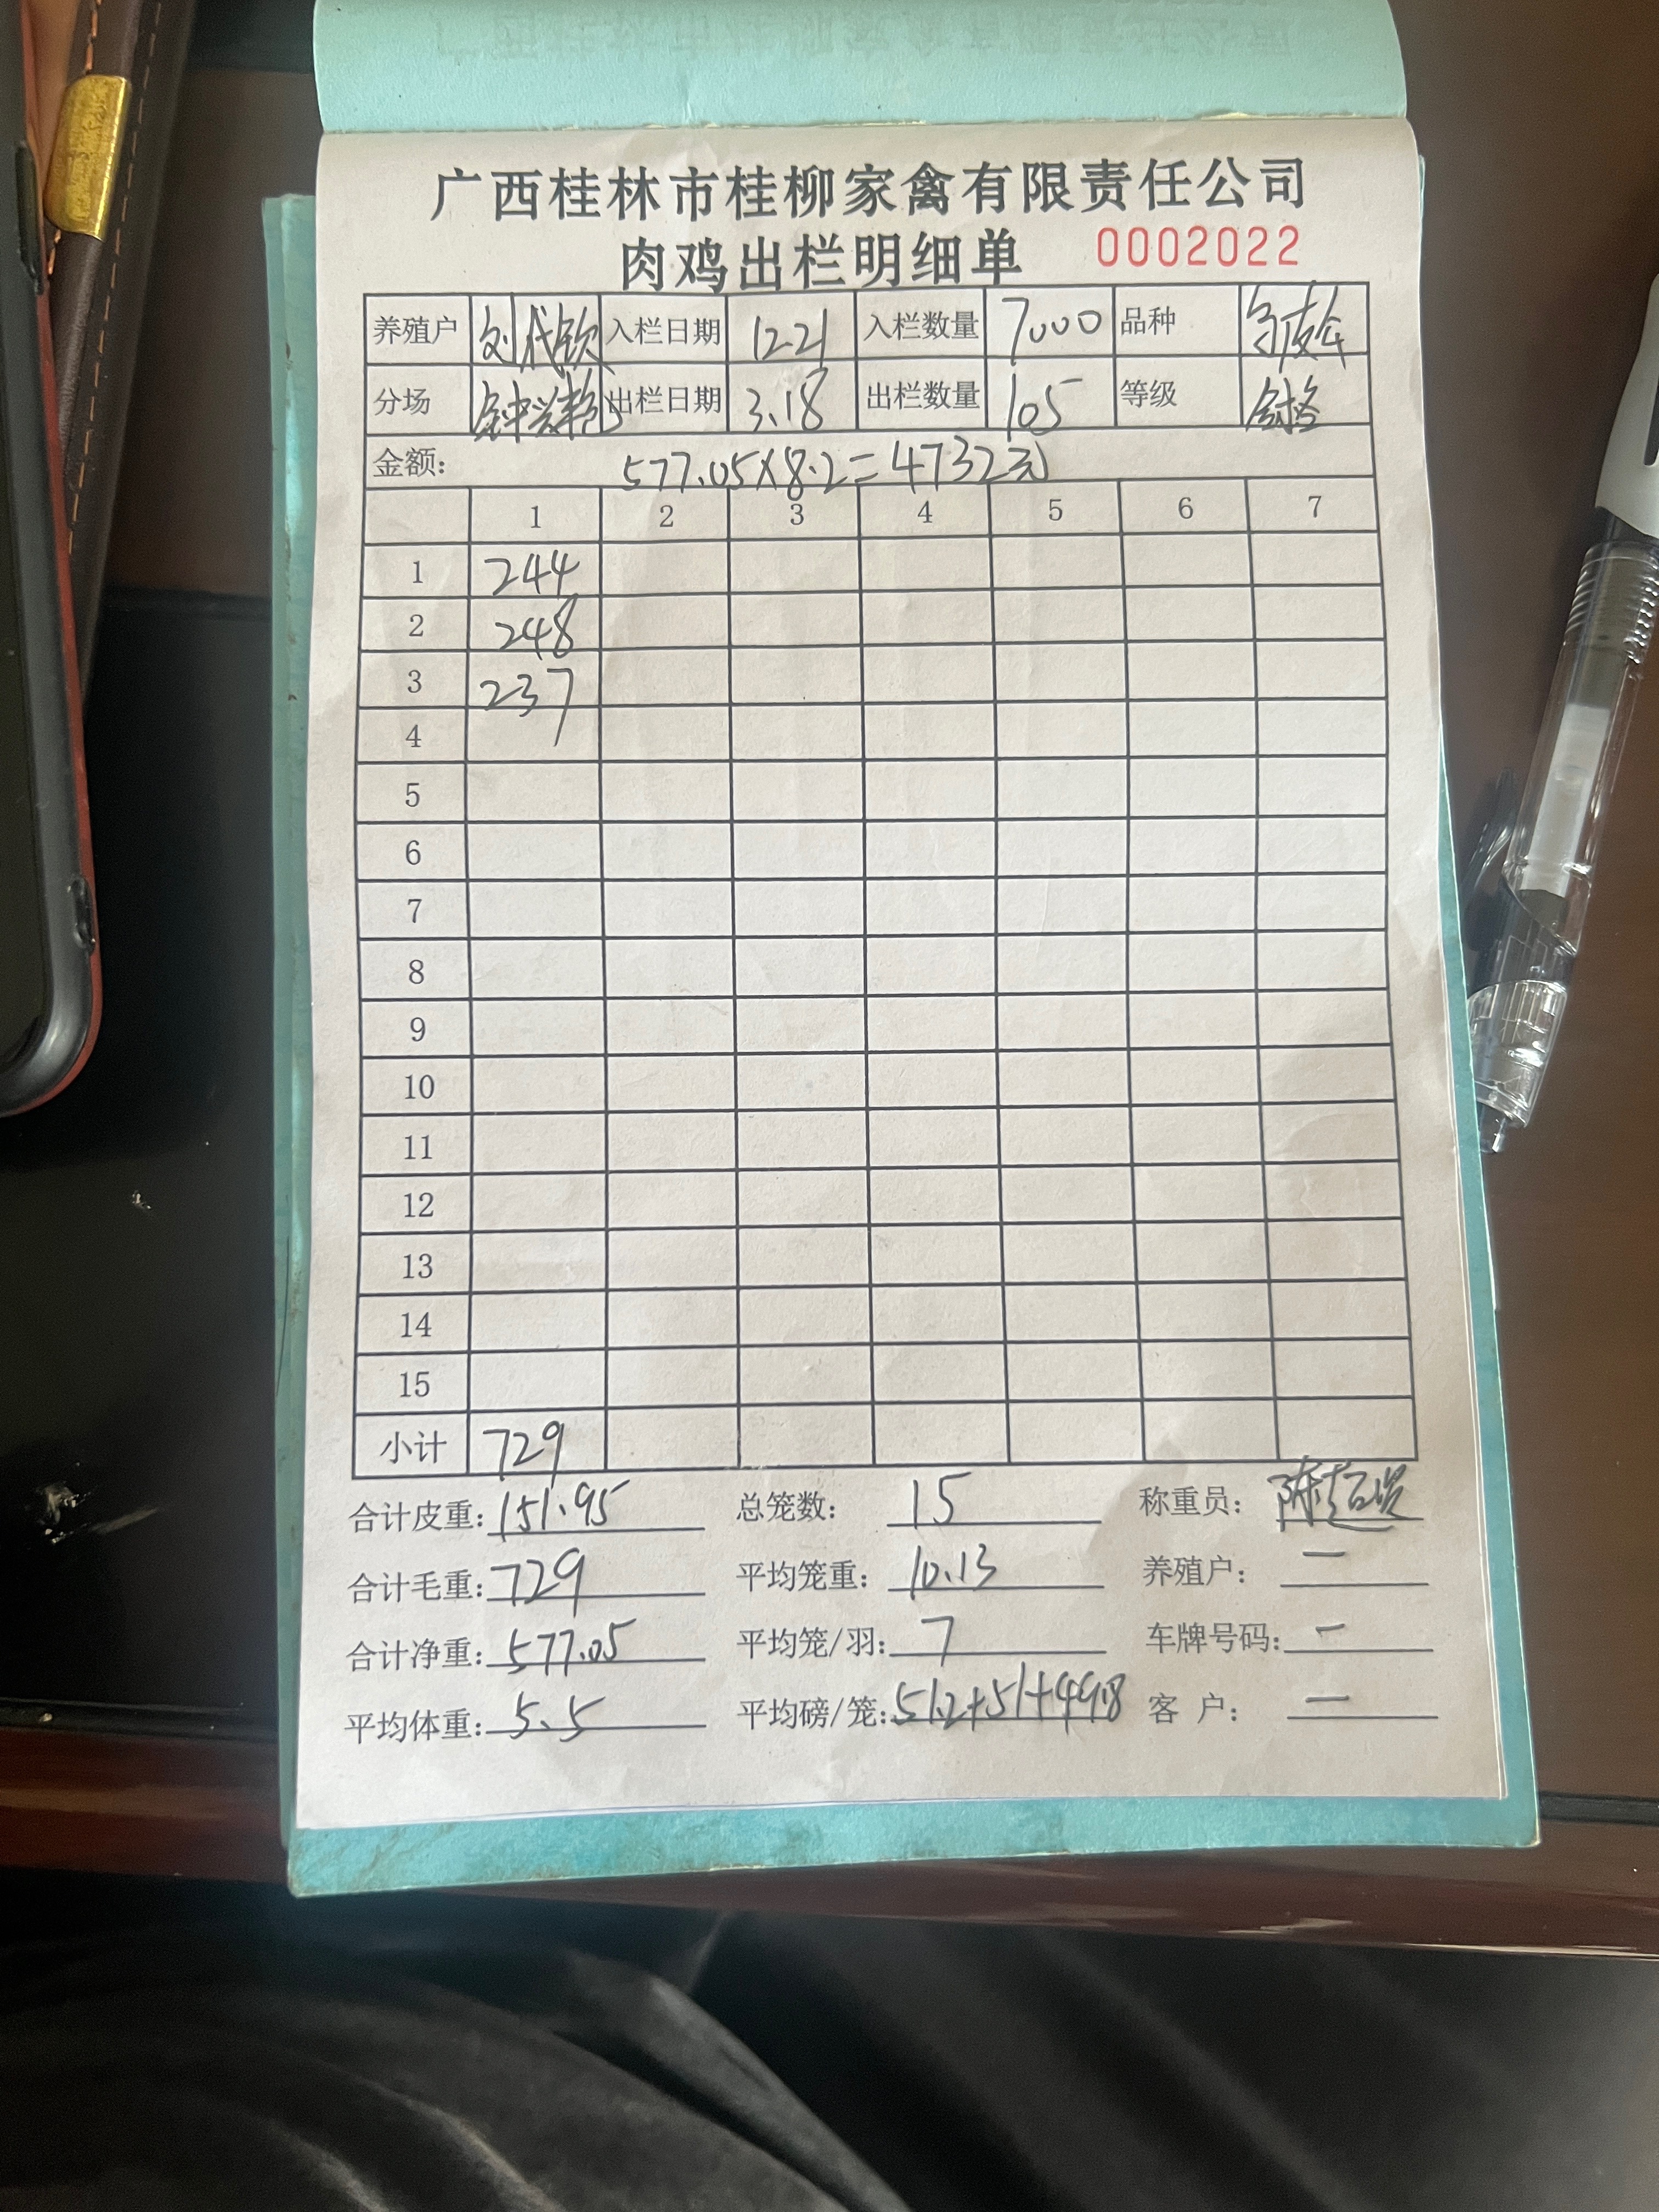 广西桂林市桂柳家禽有限责任公司
肉鸡出栏明细单 0002022
养殖户 刘代钦 入栏日期 12.21 入栏数量 7000 品种
分场 出栏日期 3.18 出栏数量 105 等级 合格
金额: 577.05×8.2=4732元
1 2 3 4 5 6 7
1 244
2 248
3 237
4
5
6
7
8
9
10
11
12
13
14
15
小计 729
合计皮重: 151.95 总笼数: 15 称重员:
合计毛重: 729 平均笼重: 10.13 养殖户: 一
合计净重: 577.05 平均笼/羽: 7 车牌号码: 一
平均体重: 5.5 平均磅/笼: 51.2+51+49.8 客 户: 一